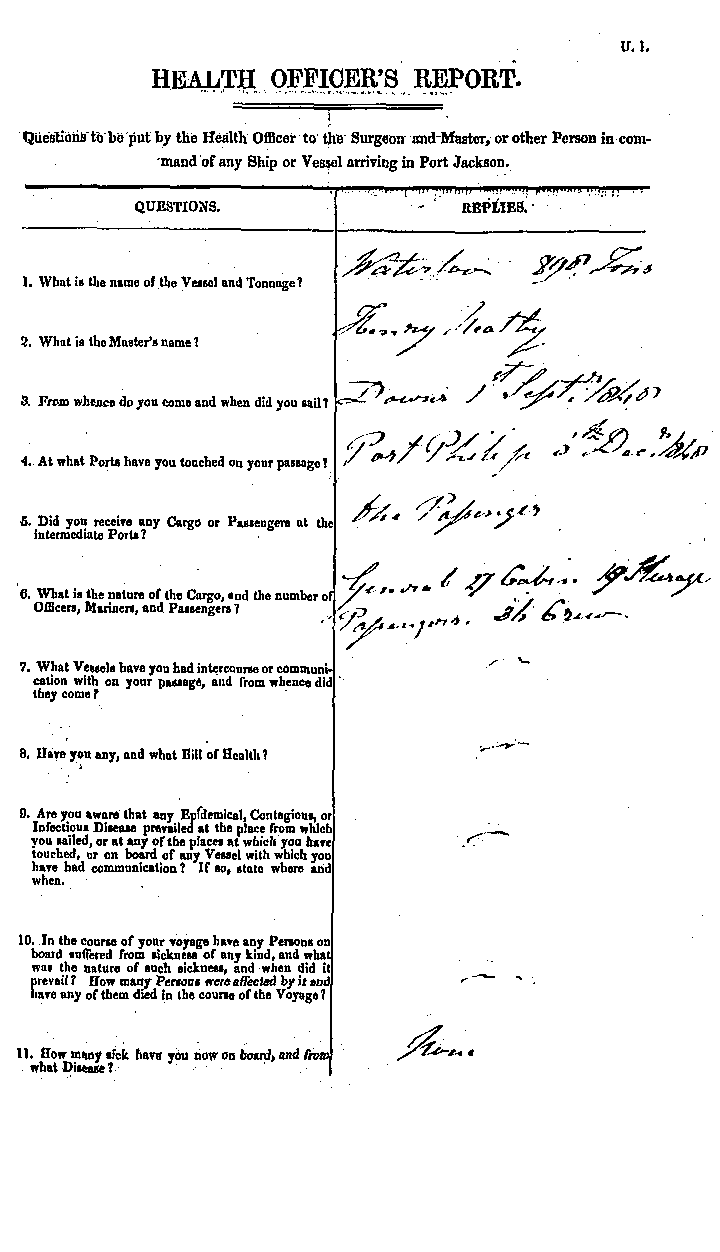 U. 1.
HEALTH OFFICER'S REPORT.
Questions to be put by the Health Officer to the Surgeon and Master, or other Person in com-
mand of any Ship or Vessel arriving in Port Jackson.
QUESTIONS.
REPLIES.
1. What is the name of the Vessel and Tonnage?
Waterloo 898 Tons
2. What is the Master's name?
Henry Neatby
3. From whence do you come and when did you sail?
Downs 1st Septr. 1848
4. At what Ports have you touched on your passage?
Port Philip Decr. 1848
5. Did you receive any Cargo or Passengers at the
intermediate Ports?
One Passenger
6. What is the nature of the Cargo, and the number of
Officers, Mariners, and Passengers?
General 27 Cabin 19 Sterage
Passengers. Crew
7. What Vessels have you had intercourse or communi-
cation with on your passage, and from whence did
they come?
8. Have you any, and what Bill of Health?
9. Are you aware that any Epidemical, Contagious, or
Infectious Disease prevailed at the place from which
you sailed, or at any of the places at which you have
touched, or on board of any Vessel with which you
have had communication? If so, state where and
when.
10. In the course of your voyage have any Persons on
board suffered from sickness of any kind, and what
was the nature of such sickness, and when did it
prevail? How many Persons were affected by it and
have any of them died in the course of the Voyage?
11. How many sick have you now on board, and from
what Disease?
None